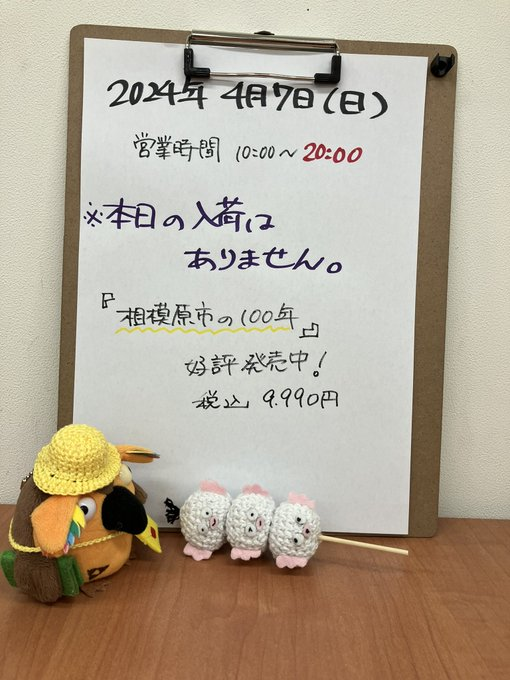 2024年 4月7日(日)
営業時間 10:00～20:00
※本日の入荷は
ありません。
『相模原市の100年』
好評発売中!
税込 9.990円